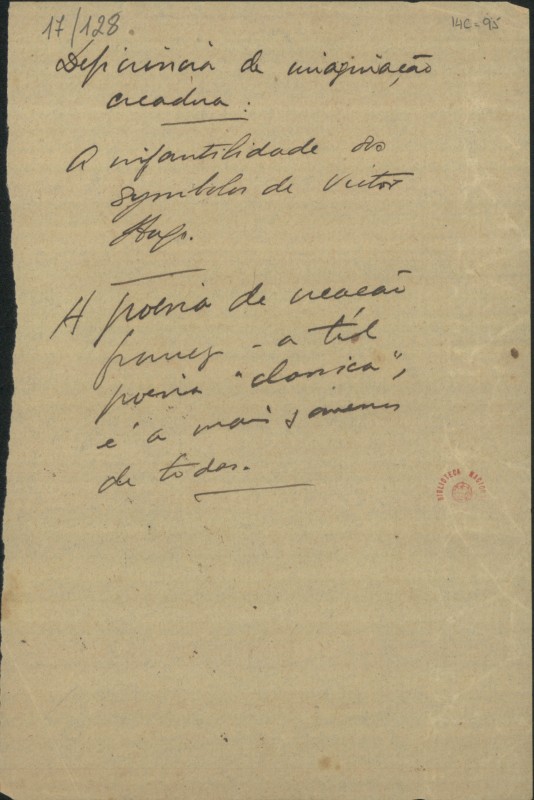 17/128
14C-95
Deficiencia de imaginação
creadora:
A infantilidade dos
symbolos de Victor
Hugo.
A poesia de
— a tal
poesia "classica",
é a mais
de todas.
BIBLIOTECA NACIONAL